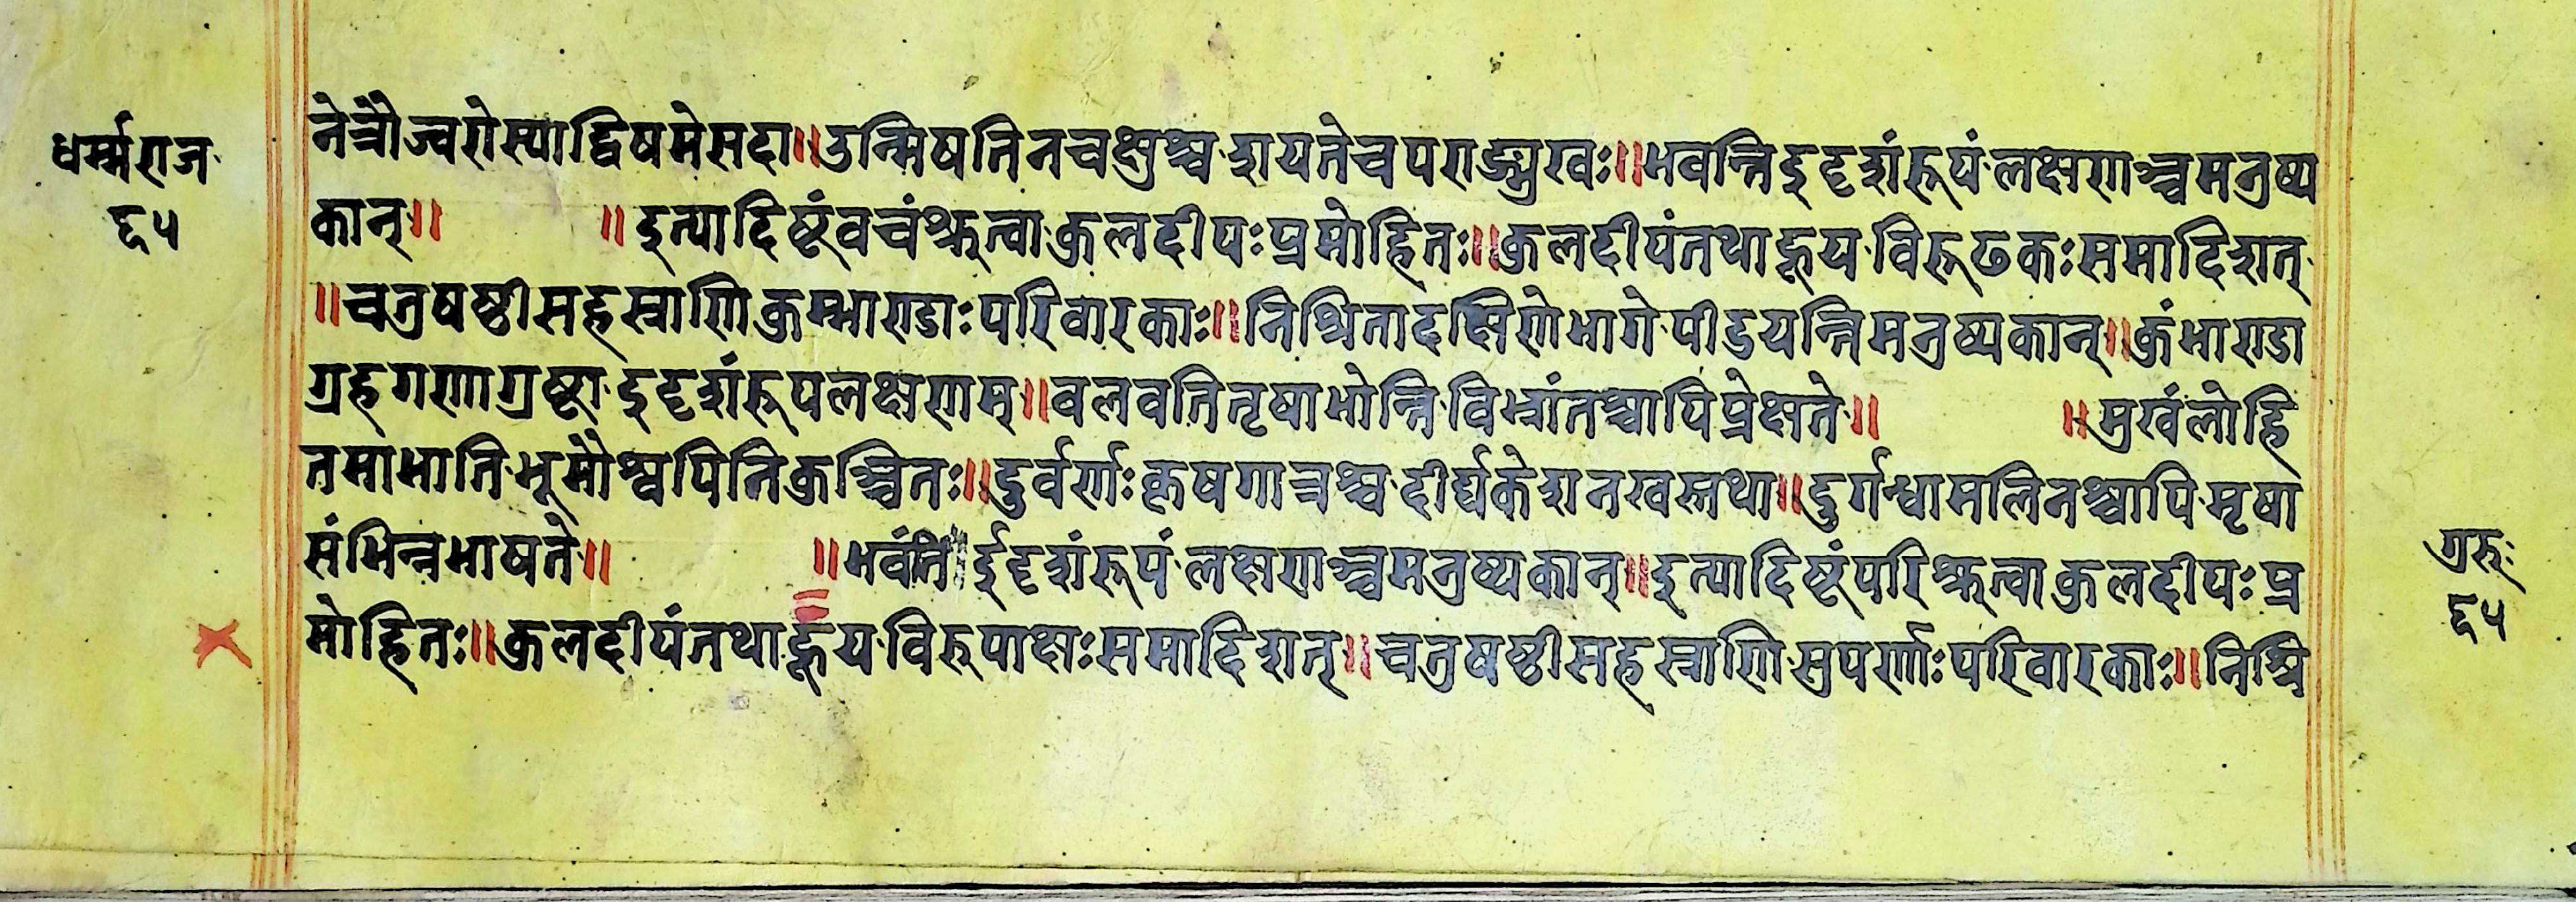 धर्म्मराज
६५
नेत्रौज्वरोस्याद्विषमेसदा॥उन्मिषतिनचक्षुश्च शयतेचपराङ्मुखः॥भवन्तिइदृशंरूपं लक्षणाञ्चमनुष्य
कान्॥ ॥इत्यादिष्टंवचंश्रुत्वा कुलदीपःप्रमोहितः॥कुलदीपंतथाहूय विरूढकःसमादिशत्
॥चतुषष्ठीसहस्राणि कुम्भाण्डाःपरिवारकाः॥निश्रितादक्षिणेभागे पीडयन्तिमनुष्यकान्॥कुंभाण्डा
ग्रहगणाग्रष्टा इदृशंरूपलक्षणम्॥वलवतितृषाभोन्ति विभ्रांतश्चापिप्रेक्षते॥ ॥मुखंलोहि
तमाभाति भूमौश्वपितिकुञ्चितः॥दुर्वर्णःकृषगात्रश्च दीर्घकेशनखस्तथा॥दुर्गन्धामलिनश्चापि मृषा
संभिन्नभाषते॥ ॥भवंति ईदृशंरूपं लक्षणाञ्चमनुष्यकान्॥इत्यादिष्टंपरिश्रुत्वा कुलदीपः प्र
मोहितः॥कुलदीपंतथाहूय विरुपाक्षःसमादिशत्॥चतुषष्ठीसहस्राणि सुपर्णाःपरिवारकाः॥निश्रि
गुरुः
६५